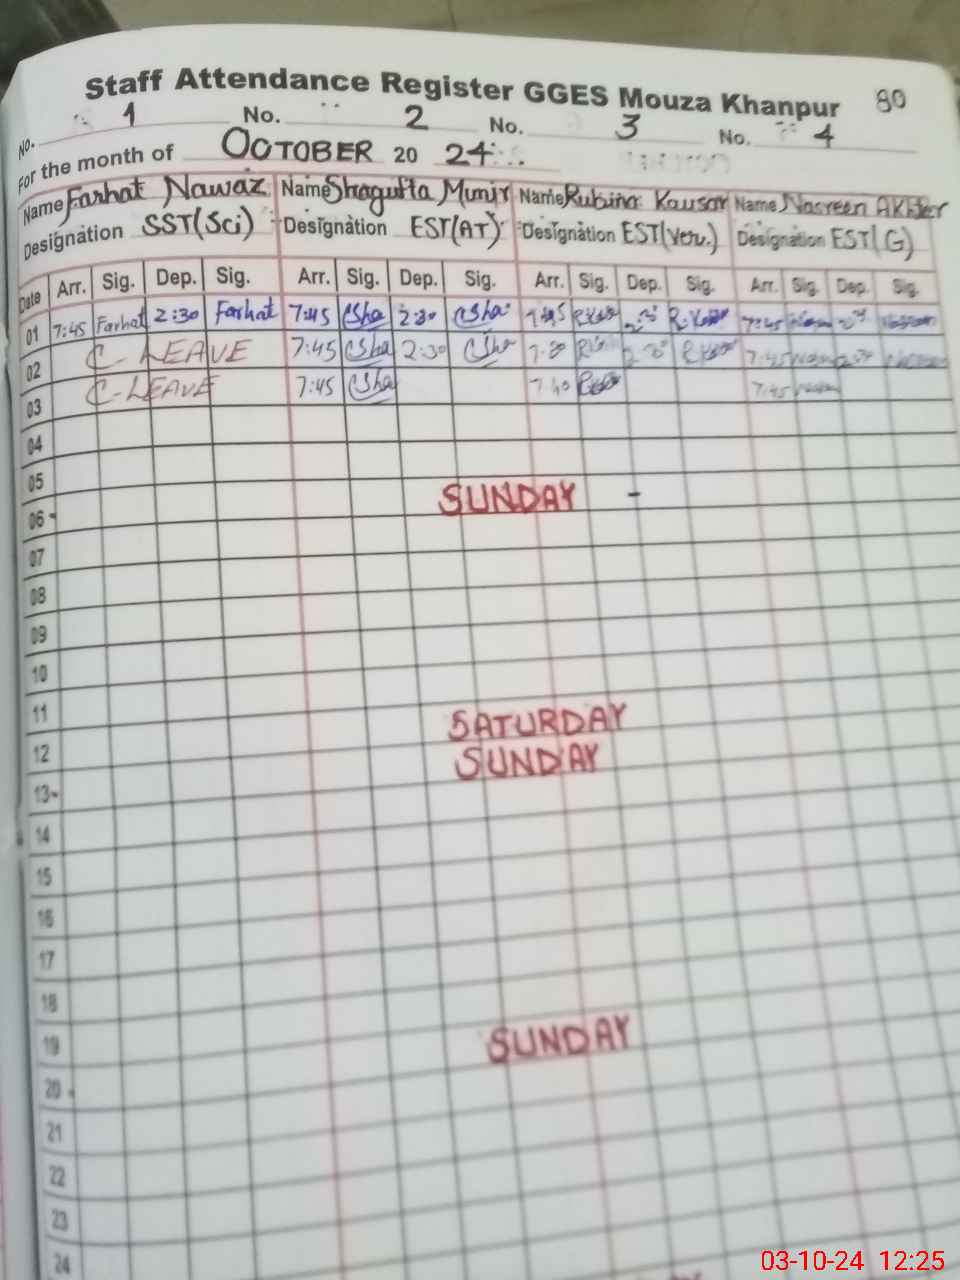 Staff Attendance Register GGES Mouza Khanpur 80
No. 1 No. 2 No. 3 No. 4
For the month of OCTOBER 20 24
Name Farhat Nawaz Name Shagufta Munir Name Rubina Kausar Name Nasreen Akhter
Designation SST(Sci) Designation EST(AT) Designation EST(Ver.) Designation EST(G)
Date Arr. Sig. Dep. Sig. Arr. Sig. Dep. Sig. Arr. Sig. Dep. Sig. Arr. Sig. Dep. Sig.
01 7:45 Farhat 2:30 Farhat 7:45 Sha 2:30 Sha 7:45
02 C-LEAVE 7:45 Sha 2:30 Sha 7:45
03 C-LEAVE 7:45 Sha 7:40 7:45
04
05
06 SUNDAY -
07
08
09
10
11
12 SATURDAY
13 SUNDAY
14
15
16
17
18
19
20 SUNDAY
21
22
23
24
03-10-24 12:25